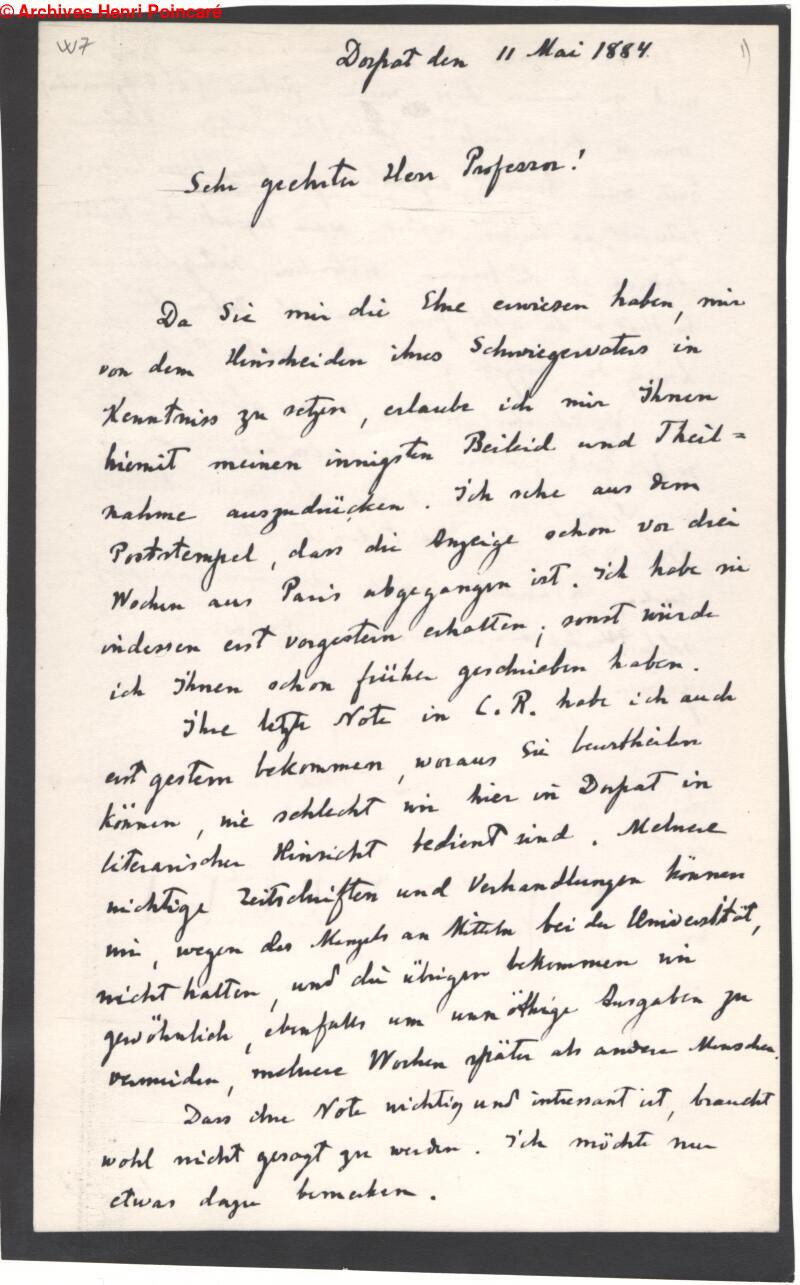 © Archives Henri Poincaré
W7
1)
Dorpat den 11 Mai 1884.
Sehr geehrter Herr Professor!
Da Sie mir die Ehre erwiesen haben, mir
von dem Hinscheiden ihres Schwiegervaters in
Kenntniss zu setzen, erlaube ich mir Ihnen
hiemit meinen innigsten Beileid und Theil=
nahme auszudrücken. Ich sehe aus dem
Poststempel, dass die Anzeige schon vor drei
Wochen aus Paris abgegangen ist. Ich habe sie
indessen erst vorgestern erhalten; sonst würde
ich Ihnen schon früher geschrieben haben.
Ihre letzte Note in C. R. habe ich auch
erst gestern bekommen, woraus Sie beurtheilen
können, wie schlecht wir hier in Dorpat in
literarischer Hinsicht bedient sind. Mehrere
wichtige Zeitschriften und Verhandlungen können
wir, wegen des Mangels an Mitteln bei der Universität,
nicht halten, und die übrigen bekommen wir
gewöhnlich, ebenfalls um unnöthige Ausgaben zu
vermeiden, mehrere Wochen später als andere Menschen.
Dass ihre Note wichtig und intressant ist, braucht
wohl nicht gesagt zu werden. Ich möchte nur
etwas dazu bemerken.